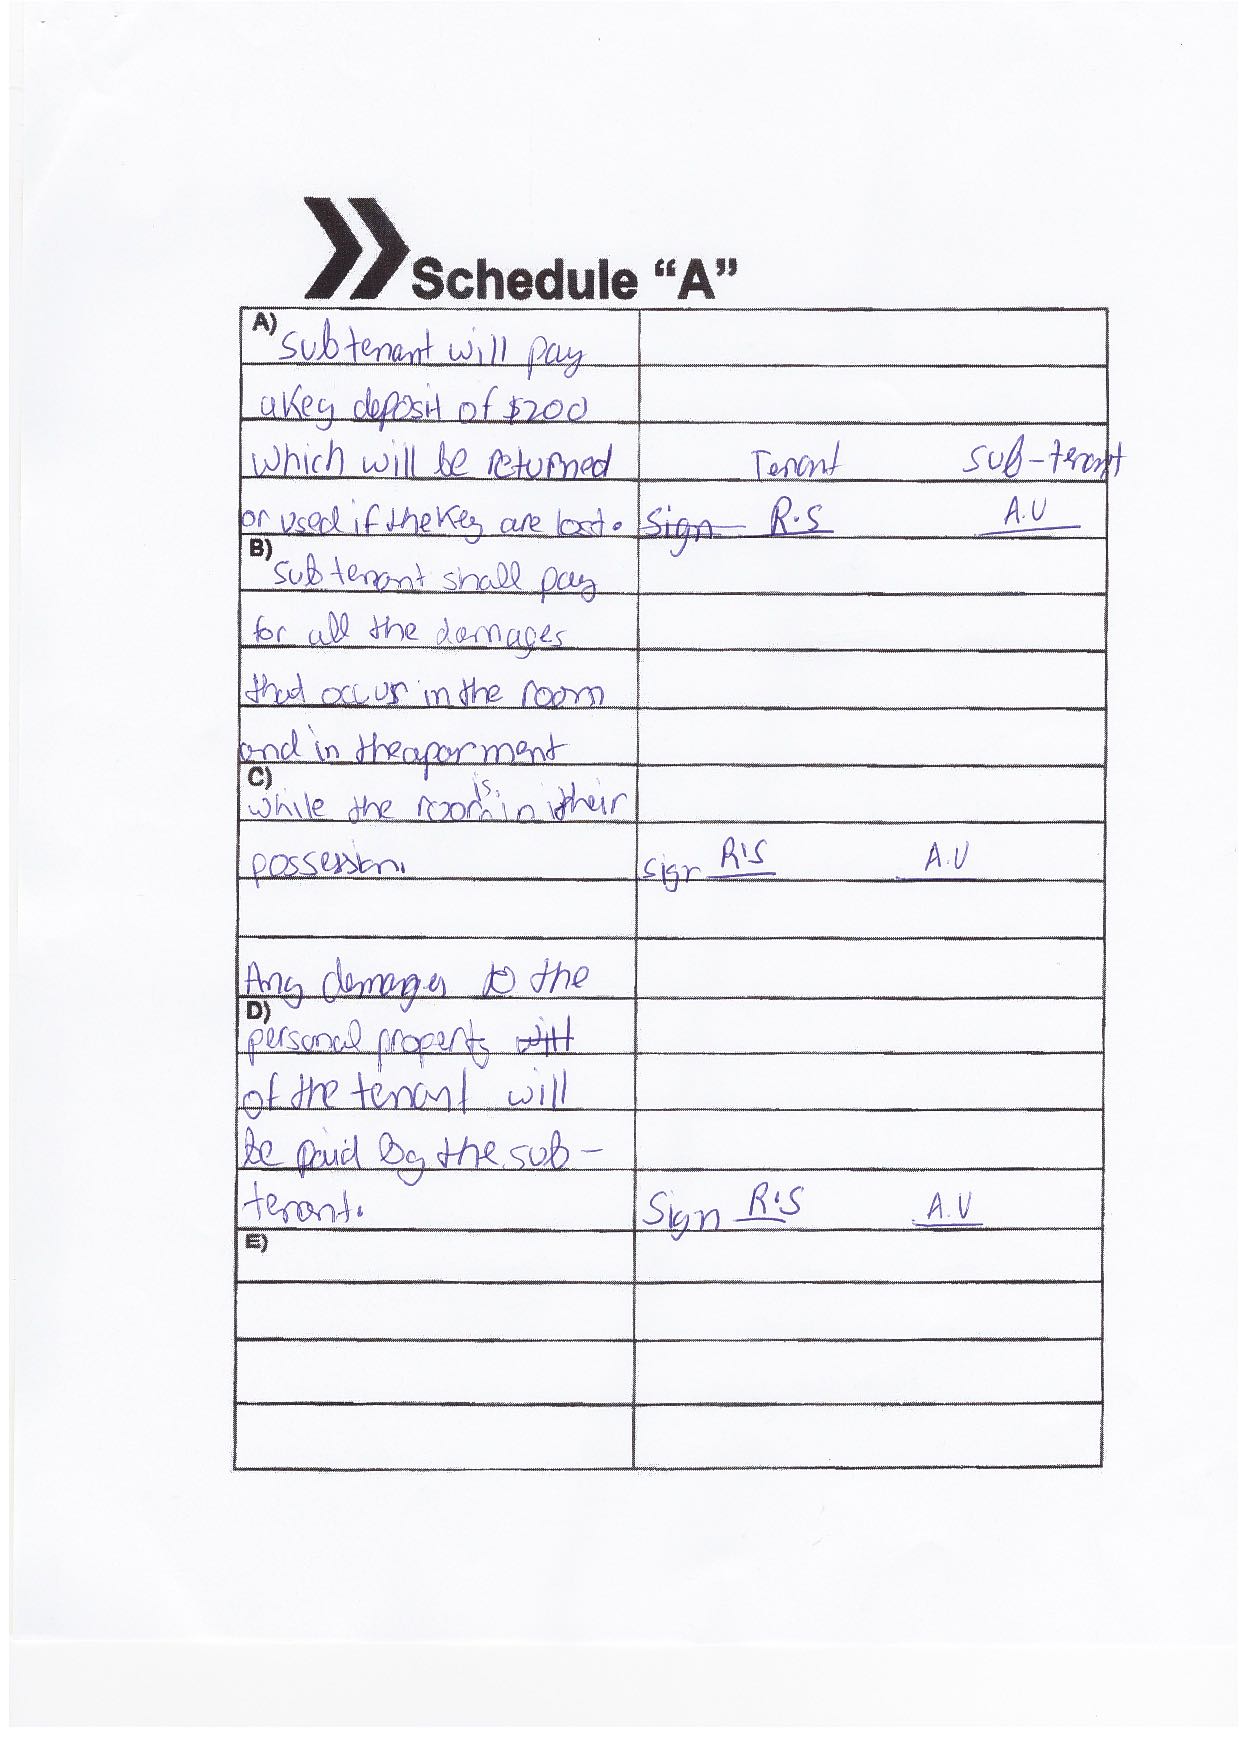 Schedule “A”
A)
subtenant will pay
a key deposit of $200
which will be returned Tenant sub-tenant
or used if the key are lost. Sign R.S A.U
B)
subtenant shall pay
for all the damages
that occur in the room
and in the aparment
C)
while the room is in their
possession. Sign R.S A.U
Any damages to the
D)
personal property will
of the tenant will
be paid by the sub-
tenant. Sign R.S A.U
E)